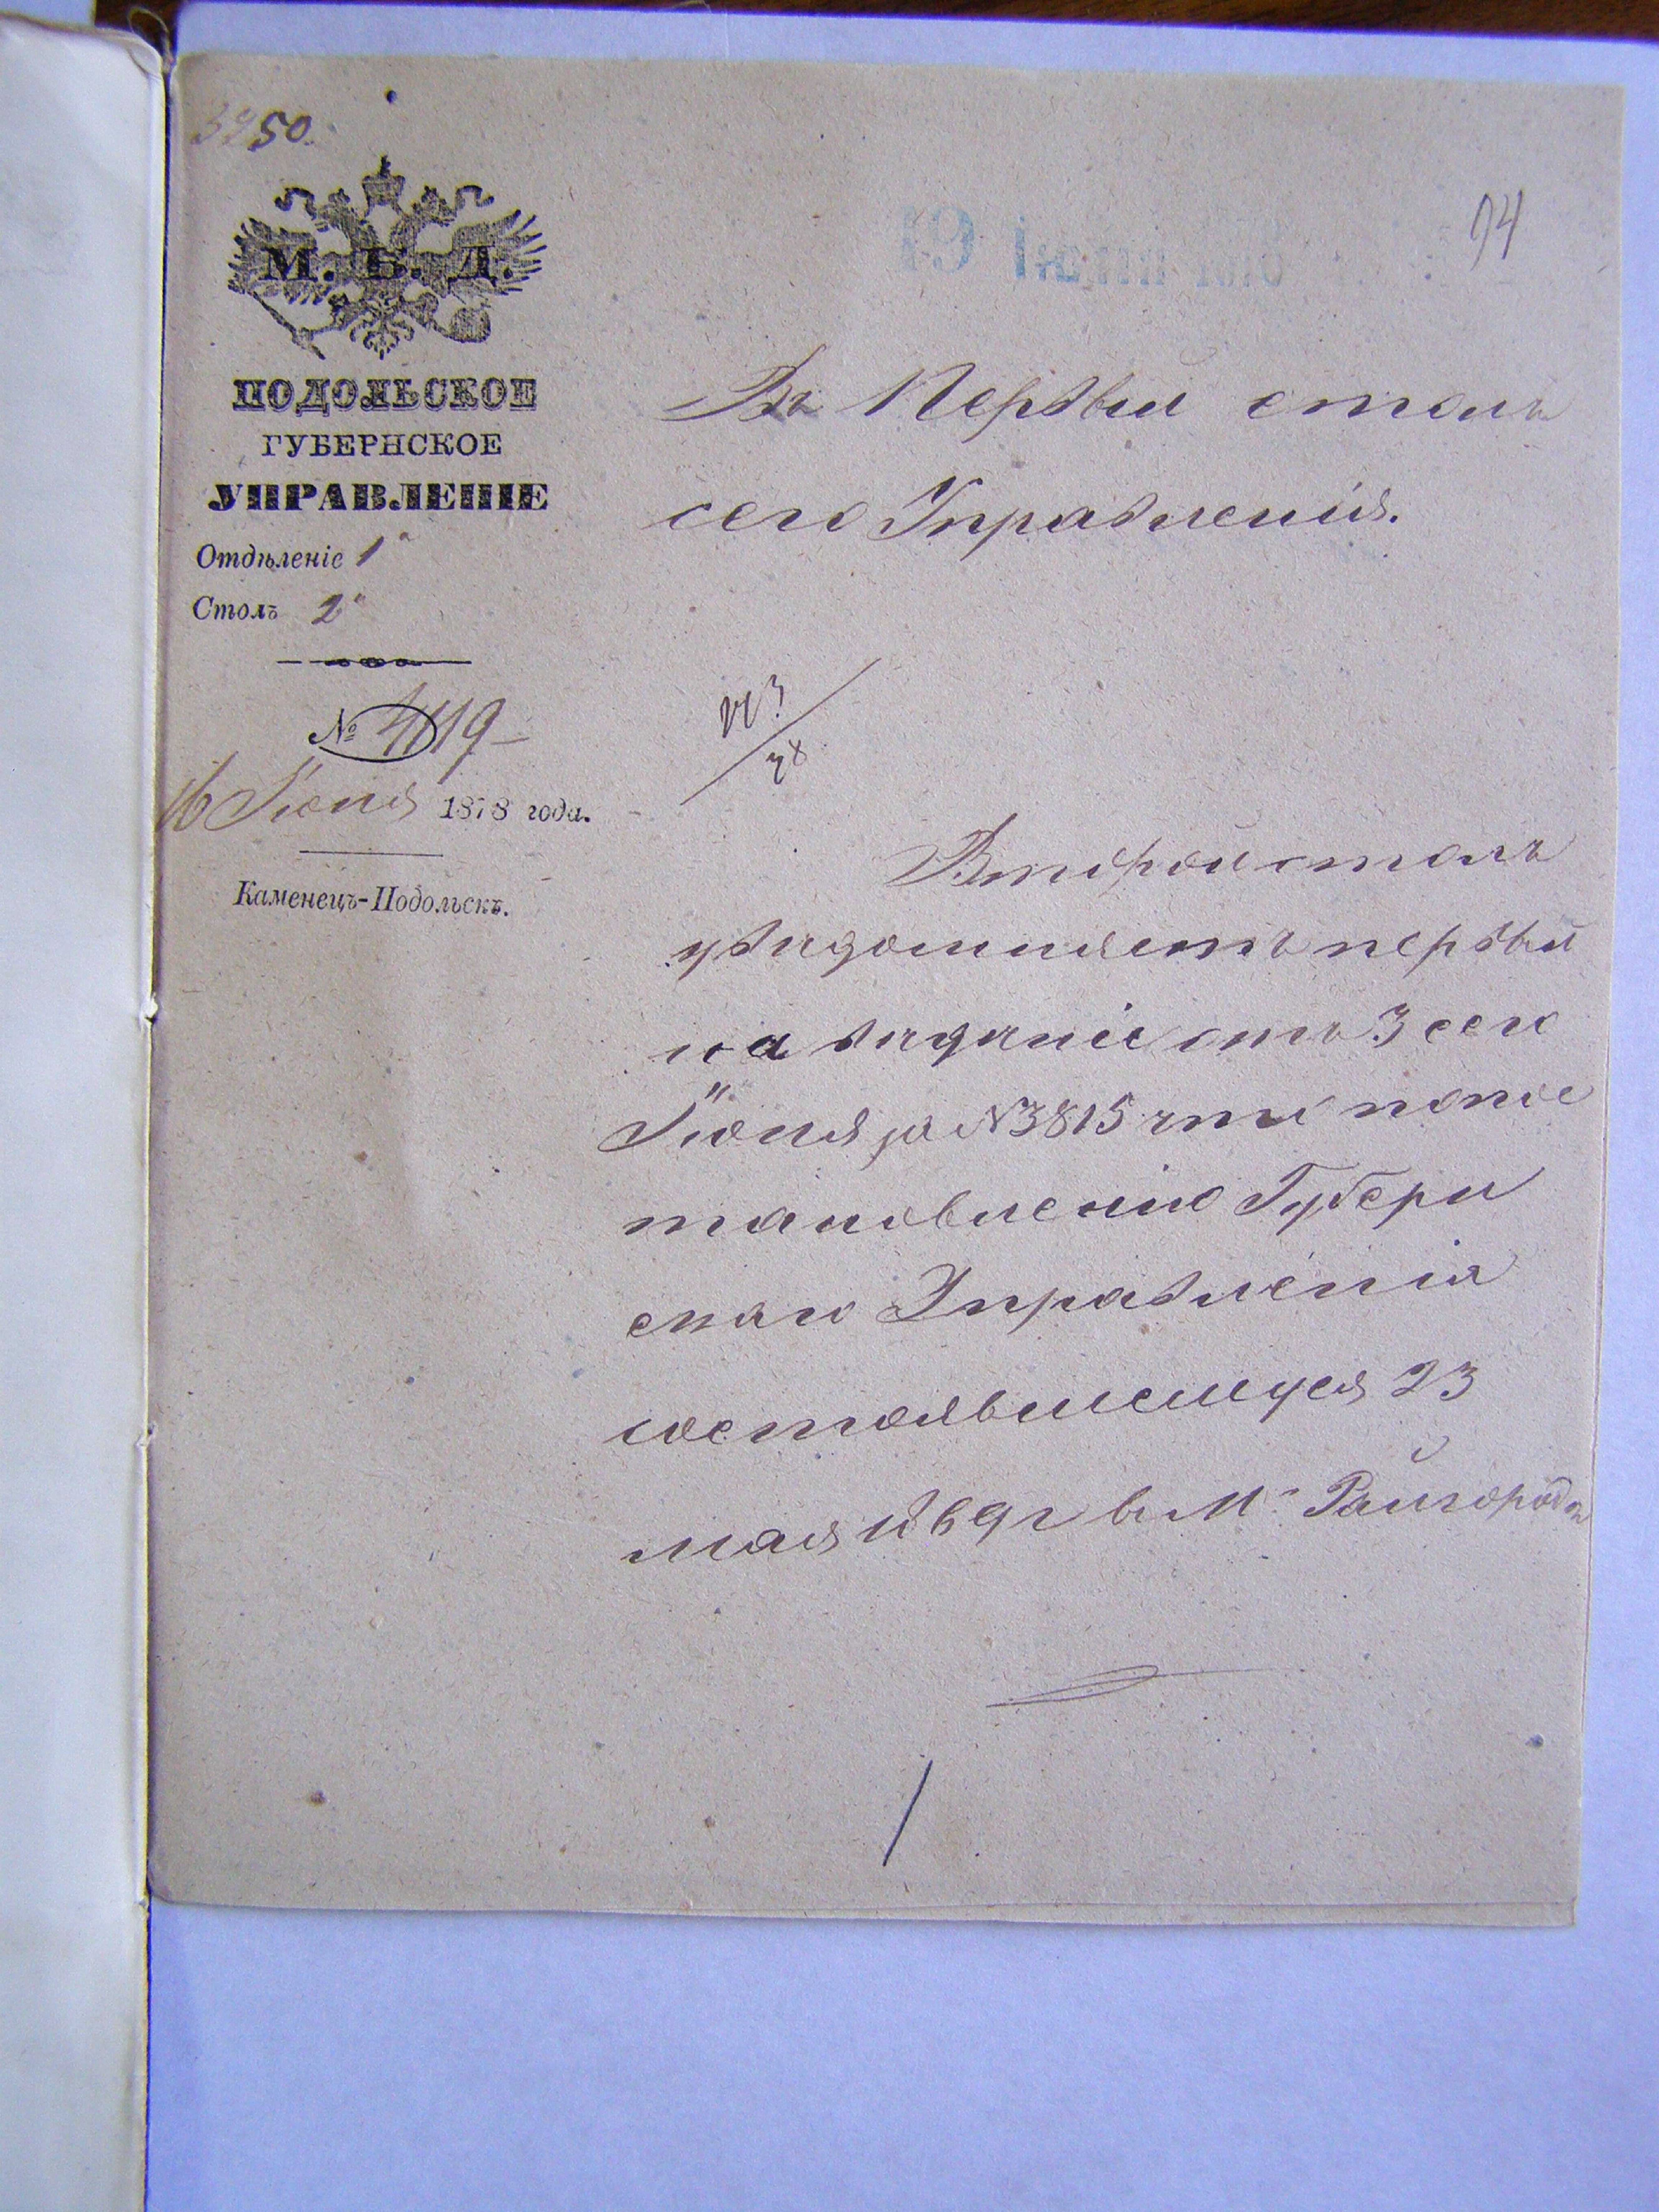 3250.
94
М. В. Д.
ПОДОЛЬСКОЕ
ГУБЕРНСКОЕ
УПРАВЛЕНІЕ
Отдѣленіе 1
Столъ 2
№ 4119
16 Іюня 1878 года.
Каменецъ-Подольскъ.
19 Іюня 1878
Въ Первый столъ
сего Управленія.
Второй столъ
увѣдомляетъ первый
на вѣдѣніе отъ 3 сего
Іюня за № 3815 что по пос
тановленію Губерн
скаго Управленія
состоявшемуся 23
мая 1869 г въ М. Райгородѣ